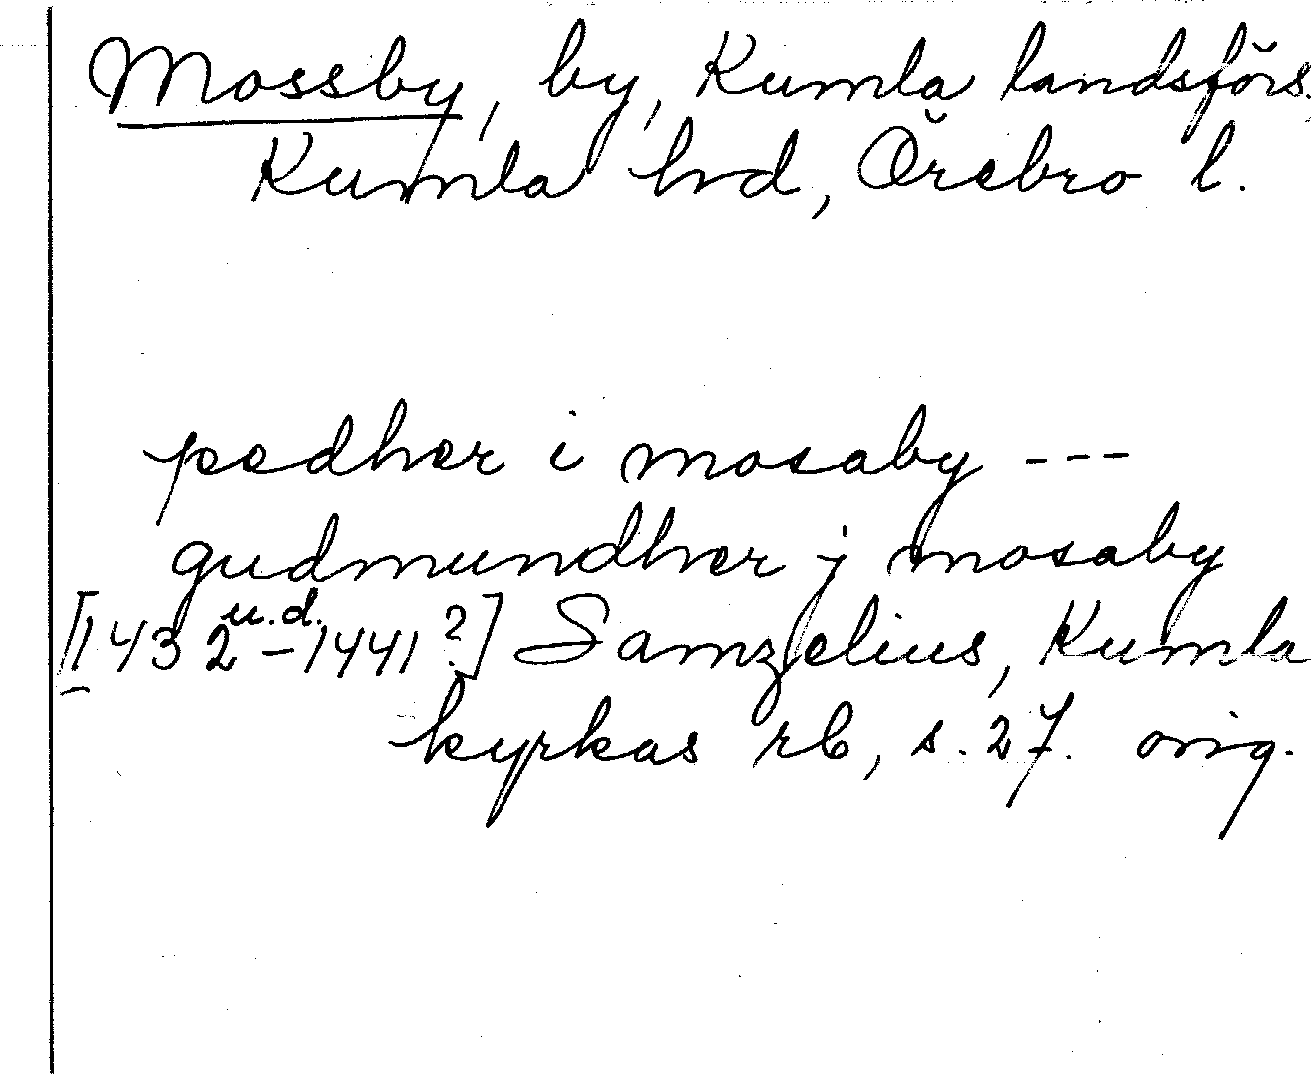 Mossby, by, Kumla landsförs.
Kumla hd, Örebro l.
pedher i mosaby ---
gudmundher j mosaby
[1432 u.d. – 1441?] Samzelius, Kumla
kyrkas rb, s. 27. orig.